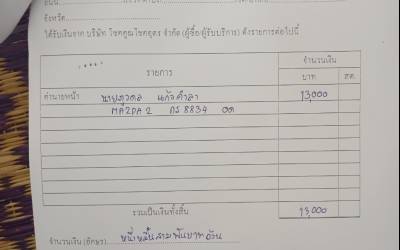 จังหวัด
ได้รับเงินจาก บริษัท โชคคูณโชคอุดร จำกัด (ผู้ซื้อ/ผู้รับบริการ) ดังรายการต่อไปนี้
รายการ
จำนวนเงิน
บาท
สต.
ค่านายหน้า นายภูวดล แก้วคำลา 13,000
MAZDA 2 กร 8834 อด
รวมเป็นเงินทั้งสิ้น 13,000
จำนวนเงิน (อักษร) หนึ่งหมื่นสามพันบาทถ้วน